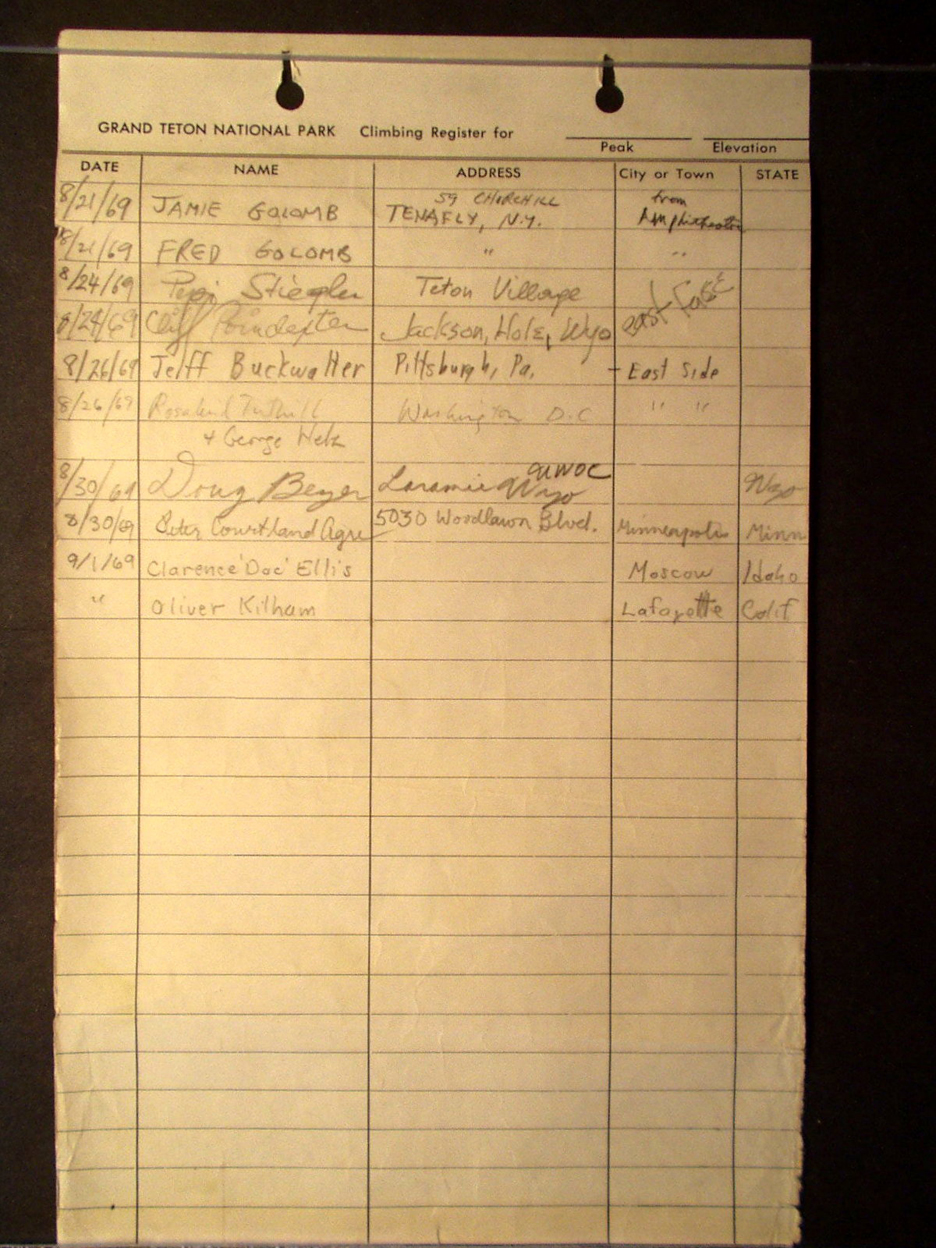 GRAND TETON NATIONAL PARK Climbing Register for
Peak Elevation
DATE NAME ADDRESS City or Town STATE
8/21/69 JAMIE GOLOMB 59 CHURCHILL TENAFLY, N.Y. from Amphitheater
8/21/69 FRED GOLOMB " "
8/24/69 Pepi Stiegler Teton Village East Face
8/24/69 Cliff Poindexter Jackson, Hole, Wyo
8/26/69 Jeff Buckwalter Pittsburgh, Pa. - East Side
8/26/69 Rosalind Washington D.C " "
+ George
8/30/69 Doug Beyer Laramie Wyo UWOC Wyo
8/30/69 Peter Courtland Agre 5030 Woodlawn Blvd. Minneapolis Minn
9/1/69 Clarence 'Doc' Ellis Moscow Idaho
" Oliver Kilham Lafayette Calif